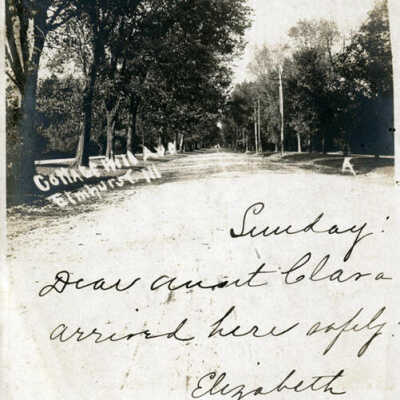 Cottage Hill Av.
Elmhurst. Ill
Sunday:
Dear aunt Clara
arrived here safely.
Elizabeth